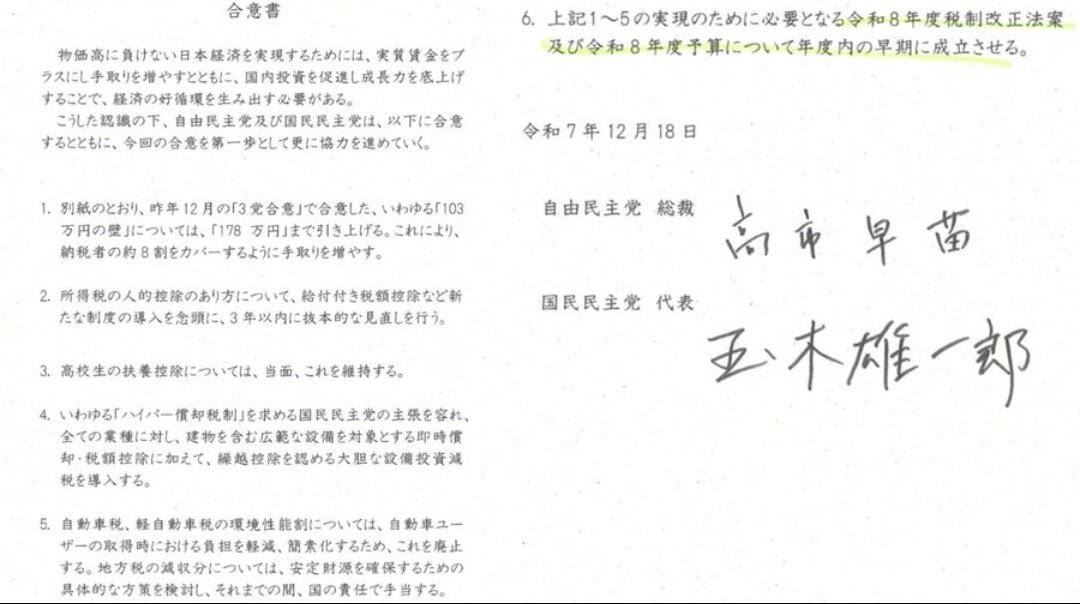 合意書
物価高に負けない日本経済を実現するためには、実質賃金をプ
ラスにし手取りを増やすとともに、国内投資を促進し成長力を底上げ
することで、経済の好循環を生み出す必要がある。
こうした認識の下、自由民主党及び国民民主党は、以下に合意
するとともに、今回の合意を第一歩として更に協力を進めていく。
1. 別紙のとおり、昨年12月の「3党合意」で合意した、いわゆる「103
万円の壁」については、「178 万円」まで引き上げる。これにより、
納税者の約8割をカバーするように手取りを増やす。
2. 所得税の人的控除のあり方について、給付付き税額控除など新
たな制度の導入を念頭に、3年以内に抜本的な見直しを行う。
3. 高校生の扶養控除については、当面、これを維持する。
4. いわゆる「ハイパー償却税制」を求める国民民主党の主張を容れ、
全ての業種に対し、建物を含む広範な設備を対象とする即時償
却・税額控除に加えて、繰越控除を認める大胆な設備投資減
税を導入する。
5. 自動車税、軽自動車税の環境性能割については、自動車ユー
ザーの取得時における負担を軽減、簡素化するため、これを廃止
する。地方税の減収分については、安定財源を確保するための
具体的な方策を検討し、それまでの間、国の責任で手当する。
6. 上記1～5の実現のために必要となる令和8年度税制改正法案
及び令和8年度予算について年度内の早期に成立させる。
令和7年12月18日
自由民主党 総裁 高市早苗
国民民主党 代表 玉木雄一郎